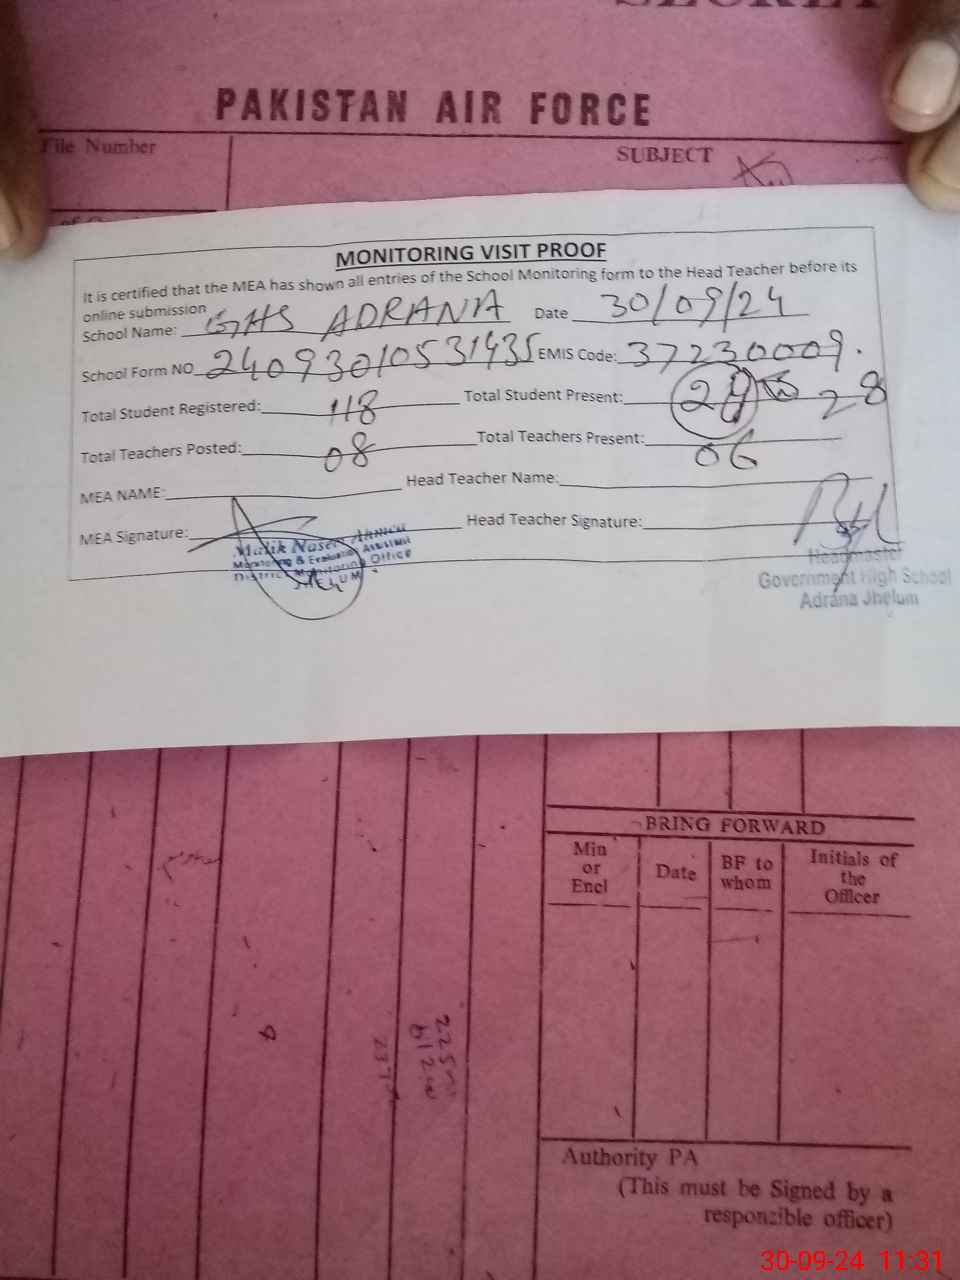 PAKISTAN AIR FORCE
File Number
SUBJECT
MONITORING VISIT PROOF
It is certified that the MEA has shown all entries of the School Monitoring form to the Head Teacher before its
online submission
School Name: GHS ADRANA Date 30/09/24
School Form NO 24093010531435 EMIS Code: 37230009.
Total Student Registered: 118 Total Student Present: 28
Total Teachers Posted: 08 Total Teachers Present: 06
MEA NAME: Head Teacher Name:
MEA Signature: Head Teacher Signature:
Malik Naser Ahmed
Monitoring & Evaluation Assistant
District Monitoring Office
JHELUM
Headmaster
Government High School
Adrana Jhelum
BRING FORWARD
Min or Encl Date BF to whom Initials of the Officer
Authority PA
(This must be Signed by a
responzible officer)
30-09-24 11:31